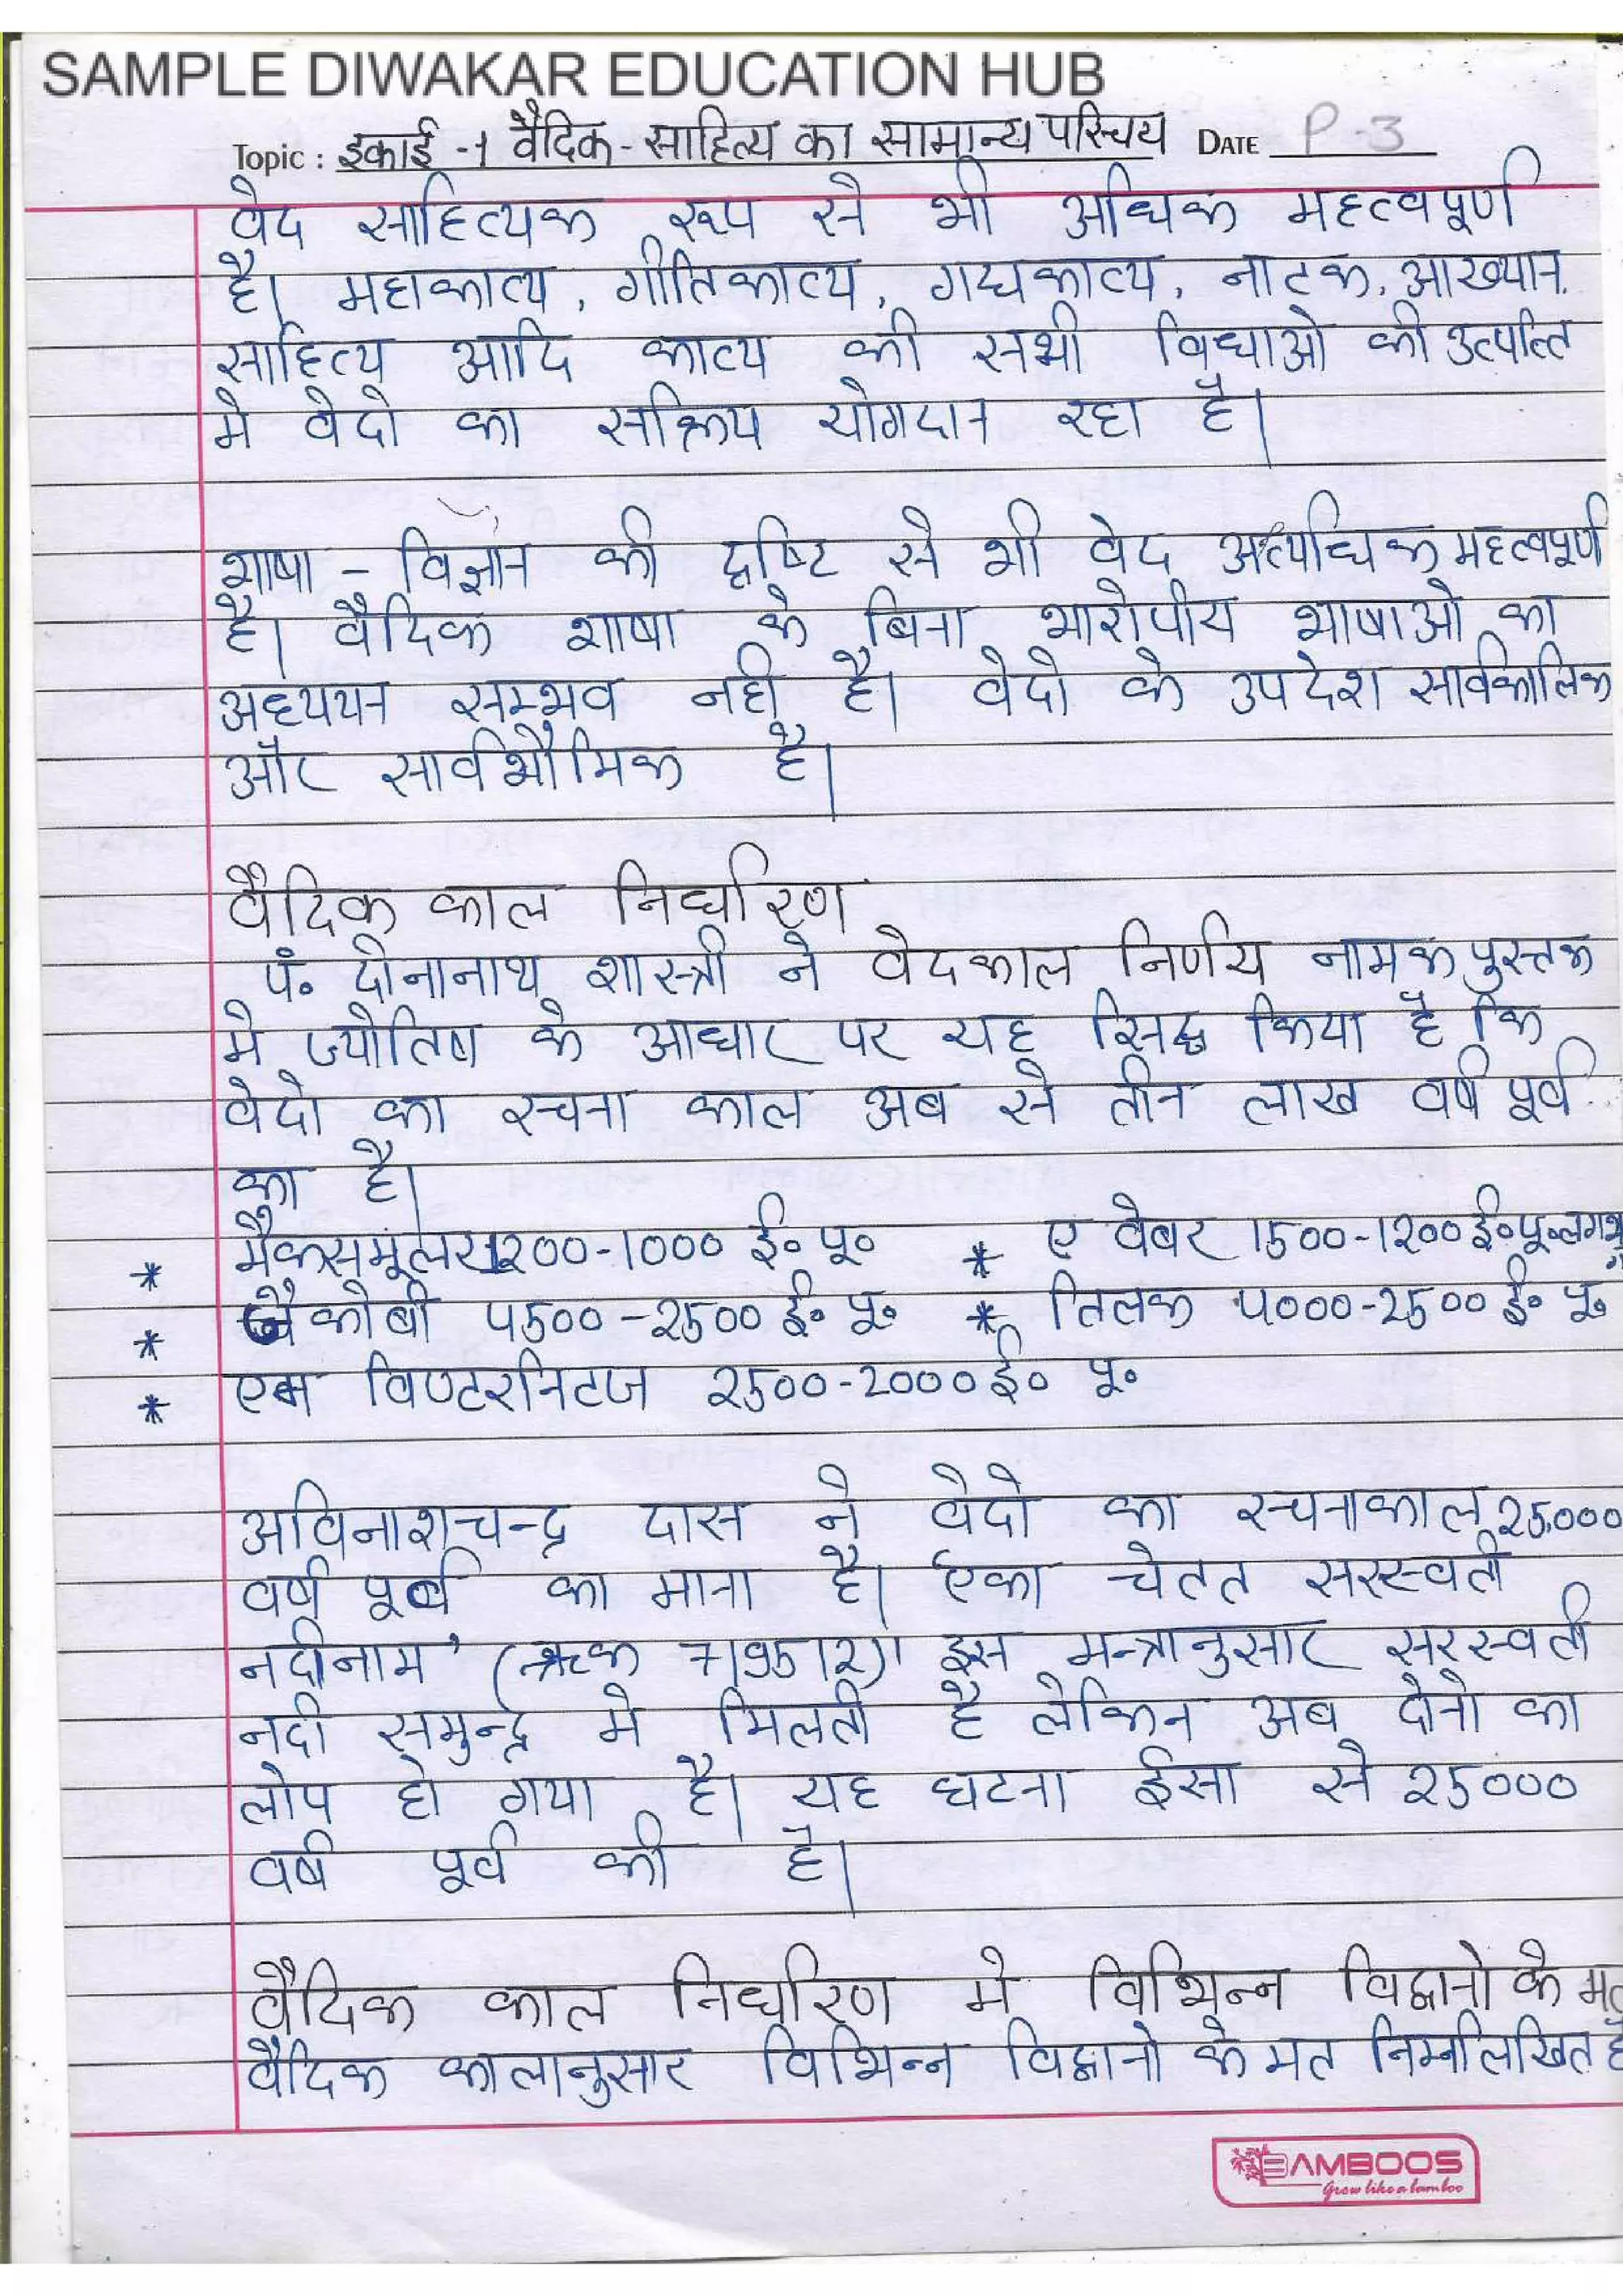 SAMPLE DIWAKAR EDUCATION HUB
Topic : इकाई -1 वैदिक - साहित्य का सामान्य परिचय DATE P-3
वेद साहित्यक रूप से भी अधिक महत्वपूर्ण
है। महाकाव्य, गीतिकाव्य, गद्यकाव्य, नाटक, आख्यान,
साहित्य आदि काव्य की सभी विधाओ की उत्पत्ति
मे वेदो का सक्रिय योगदान रहा है।
भाषा - विज्ञान की दृष्टि से भी वेद अत्यधिक महत्वपूर्ण
है। वैदिक भाषा के बिना भारोपीय भाषाओ का
अध्ययन सम्भव नही है। वेदो के उपदेश सार्वकालिक
और सार्वभौमिक है।
वैदिक काल निर्धारण
पं॰ दीनानाथ शास्त्री ने वेदकाल निर्णय नामक पुस्तक
मे ज्योतिष के आधार पर यह सिद्ध किया है कि
वेदो का रचना काल अब से तीन लाख वर्ष पूर्व
का है।
* मैक्समूलर 1200-1000 ई॰ पू॰ * ए वेबर 1500-1200 ई॰पू॰लगभग
* जैकोबी 4500-2500 ई॰ पू॰ * तिलक 4000-2500 ई॰ पू॰
* एम विण्टरनिटज 2500-2000 ई॰ पू॰
अविनाशचन्द्र दास ने वेदो का रचनाकाल 25,000
वर्ष पूर्व का माना है। एका चेतत सरस्वती
नदीनाम' (ऋक 7।95।2)। इस मन्त्रानुसार सरस्वती
नदी समुन्द्र मे मिलती है लेकिन अब दोनो का
लोप हो गया है। यह घटना ईसा से 25000
वर्ष पूर्व की है।
वैदिक काल निर्धारण मे विभिन्न विद्वानो के मत
वैदिक कालानुसार विभिन्न विद्वानो के मत निम्नलिखित है
BAMBOOS
Grow like a bamboo